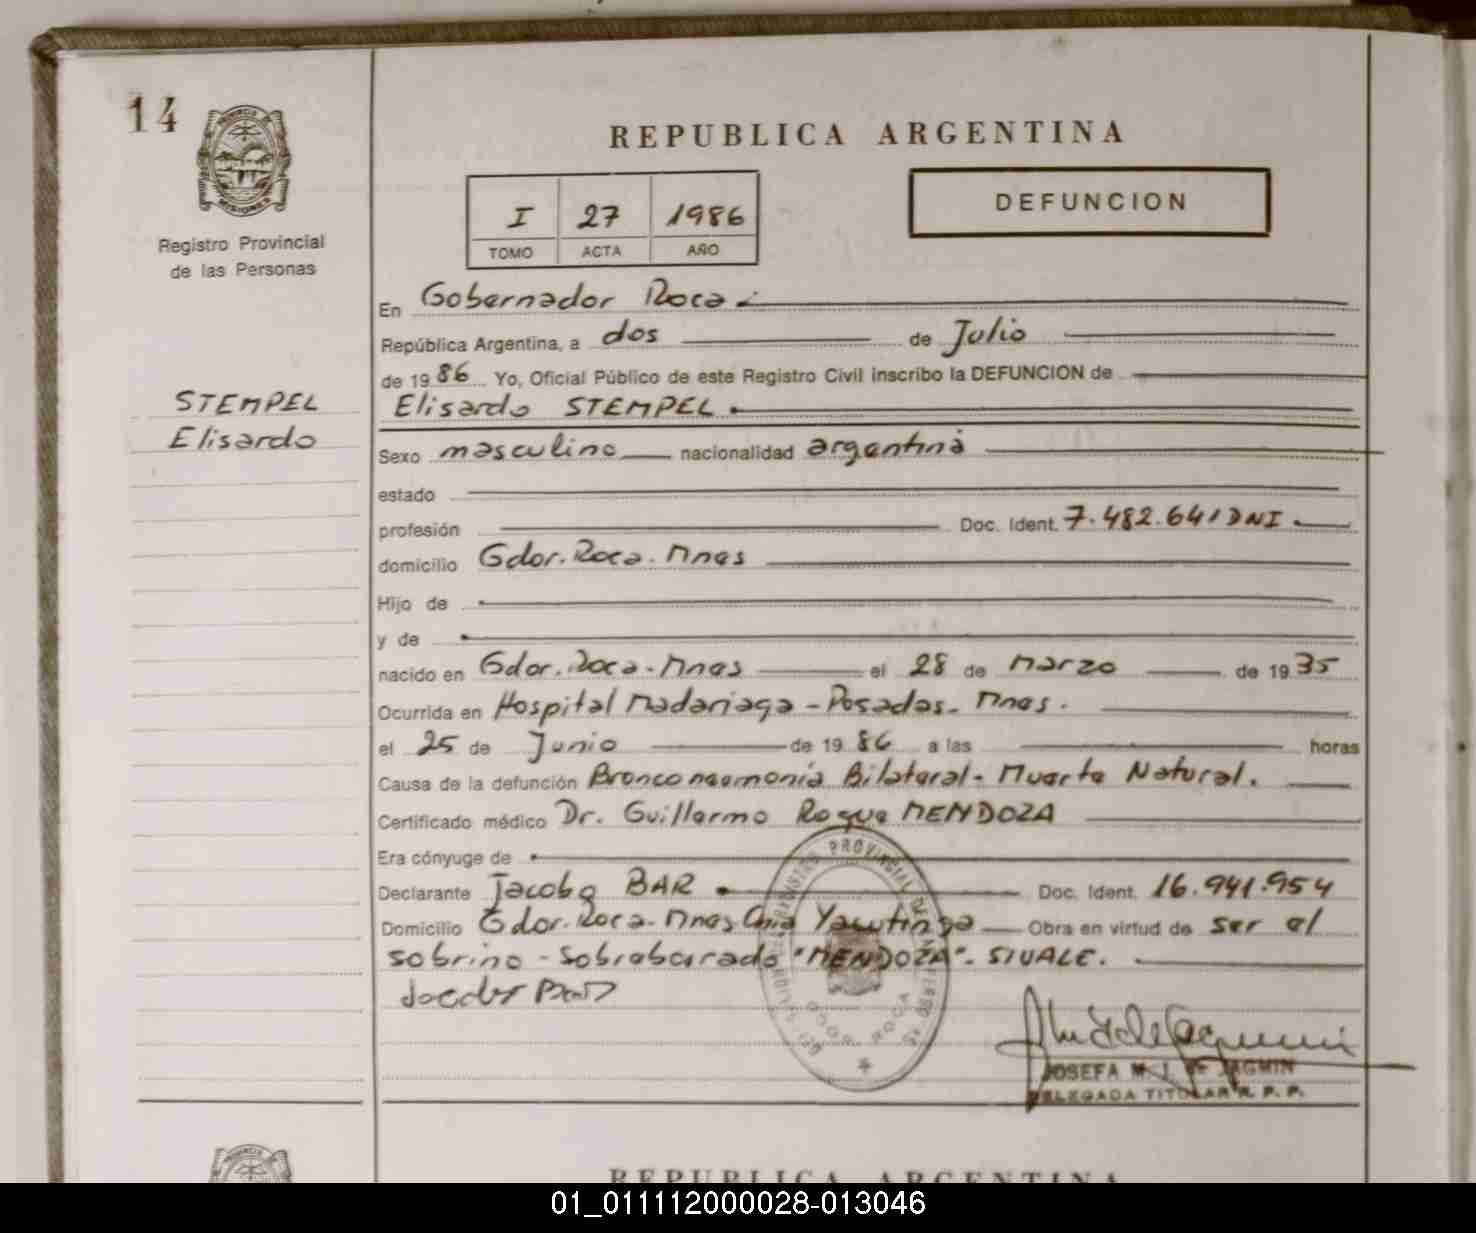 14
PROVINCIA DE
MISIONES
Registro Provincial
de las Personas
STEMPEL
Elisardo
REPUBLICA ARGENTINA
I 27 1986
TOMO ACTA AÑO
DEFUNCION
En Gobernador Roca.-
República Argentina, a dos de Julio
de 1986 Yo, Oficial Público de este Registro Civil inscribo la DEFUNCION de
Elisardo STEMPEL.
Sexo masculino nacionalidad argentina
estado
profesión Doc. Ident. 7.482.641 DNI.
domicilio Gdor. Roca. Mnes
Hijo de
y de
nacido en Gdor. Roca - Mnes el 28 de Marzo de 1935
Ocurrida en Hospital Madariaga - Posadas - Mnes.
el 25 de Junio de 1986 a las horas
Causa de la defunción Bronconeomonía Bilateral - Muerte Natural.
Certificado médico Dr. Guillermo Roque MENDOZA
Era cónyuge de
Declarante Jacobo BAR. Doc. Ident. 16.941.954
Domicilio Gdor. Roca - Mnes Cnia Yacutinga Obra en virtud de ser el
sobrino - Sobreborrado "MENDOZA" - SIVALE.
Jacobo Bar
REGISTRO PROVINCIAL DE
GDOR. ROCA
JOSEFA M. J. de JAGMIN
DELEGADA TITULAR R. P. P.
REPUBLICA ARGENTINA
01_011112000028-013046